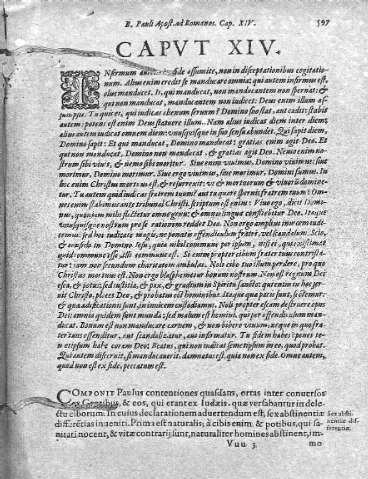 B. Pauli Apost. ad Romanos. Cap. XIV. 597
CAPVT XIV.
INfirmum autem in fide assumite, non in disceptationibus cogitatio-
num. Alius enim credit se manducare omnia: qui autem infirmus est,
olus manducet. Is, qui manducat, non manducantem non spernat: &
qui non manducat, manducantem non iudicet: Deus enim illum as-
sumpsit. Tu quis es, qui iudicas alienum seruum? Domino suo stat, aut cadit: stabit
autem: potens est enim Deus statuere illum. Nam alius iudicat diem inter diem;
alius autem iudicat omnem diem: vnusquisque in suo sensu abundet. Qui sapit diem,
Domino sapit: Et qui manducat, Domino manducat: gratias enim agit Deo. Et
qui non manducat, Domino non manducat, & gratias agit Deo. Nemo enim no-
strum sibi viuit, & nemo sibi moritur. Siue enim viuimus, Domino viuimus: siue
morimur, Domino morimur. Siue ergo viuimus, siue morimur, Domini sumus. In
hoc enim Christus mortuus est, & resurrexit: vt & mortuorum & viuorum domine-
tur. Tu autem quid iudicas fratrem tuum? aut tu quare spernis fratrem tuum? Om-
nes enim stabimus ante tribunal Christi. scriptum est enim: Viuo ego, dicit Domi-
nus, quoniam mihi flectetur omne genu: & omnis lingua confitebitur Deo. Itaque
vnusquisque nostrum pro se rationem reddet Deo. Non ergo amplius inuicem iudi-
cemus: sed hoc iudicate magis, ne ponatis offendiculum fratri, vel scandalum. Scio,
& confido in Domino Iesu, quia nihil commune per ipsum, nisi ei, qui existimat
quid commune esse, illi commune est. Si enim propter cibum frater tuus contrista-
tur: iam non secundum charitatem ambulas. Noli cibo tuo illum perdere, pro quo
Christus mortuus est. Non ergo blasphemetur bonum nostrum. Non est regnum Dei
esca, & potus: sed iustitia, & pax, & gaudium in Spiritu sancto: qui enim in hoc ser-
uit Christo, placet Deo, & probatus est hominibus. Itaque quæ pacis sunt, sectemur:
& quæ ædificationis sunt, in inuicem custodiamus. Noli propter escam destruere opus
Dei: omnia quidem sunt munda: sed malum est homini, qui per offendiculum man-
ducat. Bonum est non manducare carnem, & non bibere vinum, neque in quo fra-
ter tuus offenditur, aut scandalizatur, aut infirmatur. Tu fidem habes? penes te-
metipsum habe coram Deo: Beatus, qui non iudicat semetipsum in eo, quod probat.
Qui autem discernit, si manducauerit, damnatus est, quia non ex fide. Omne autem,
quod non est ex fide, peccatum est.
COMPONIT Paulus contentiones quasdam, ortas inter conuersos
ex Gentibus, & eos, qui erant ex Iudæis. quæ versabantur in dele-
ctu ciborum. In cuius declarationem aduertendum est, sex abstinentiæ
differentias inueniri. Prima est naturalis; à cibis enim, & potibus, qui sa-
nitati nocent, & vitæ contrarij sunt, naturaliter homines abstinent, im-
Sex absti-
nentiæ dif-
ferentiæ.
Vuu 3 mo